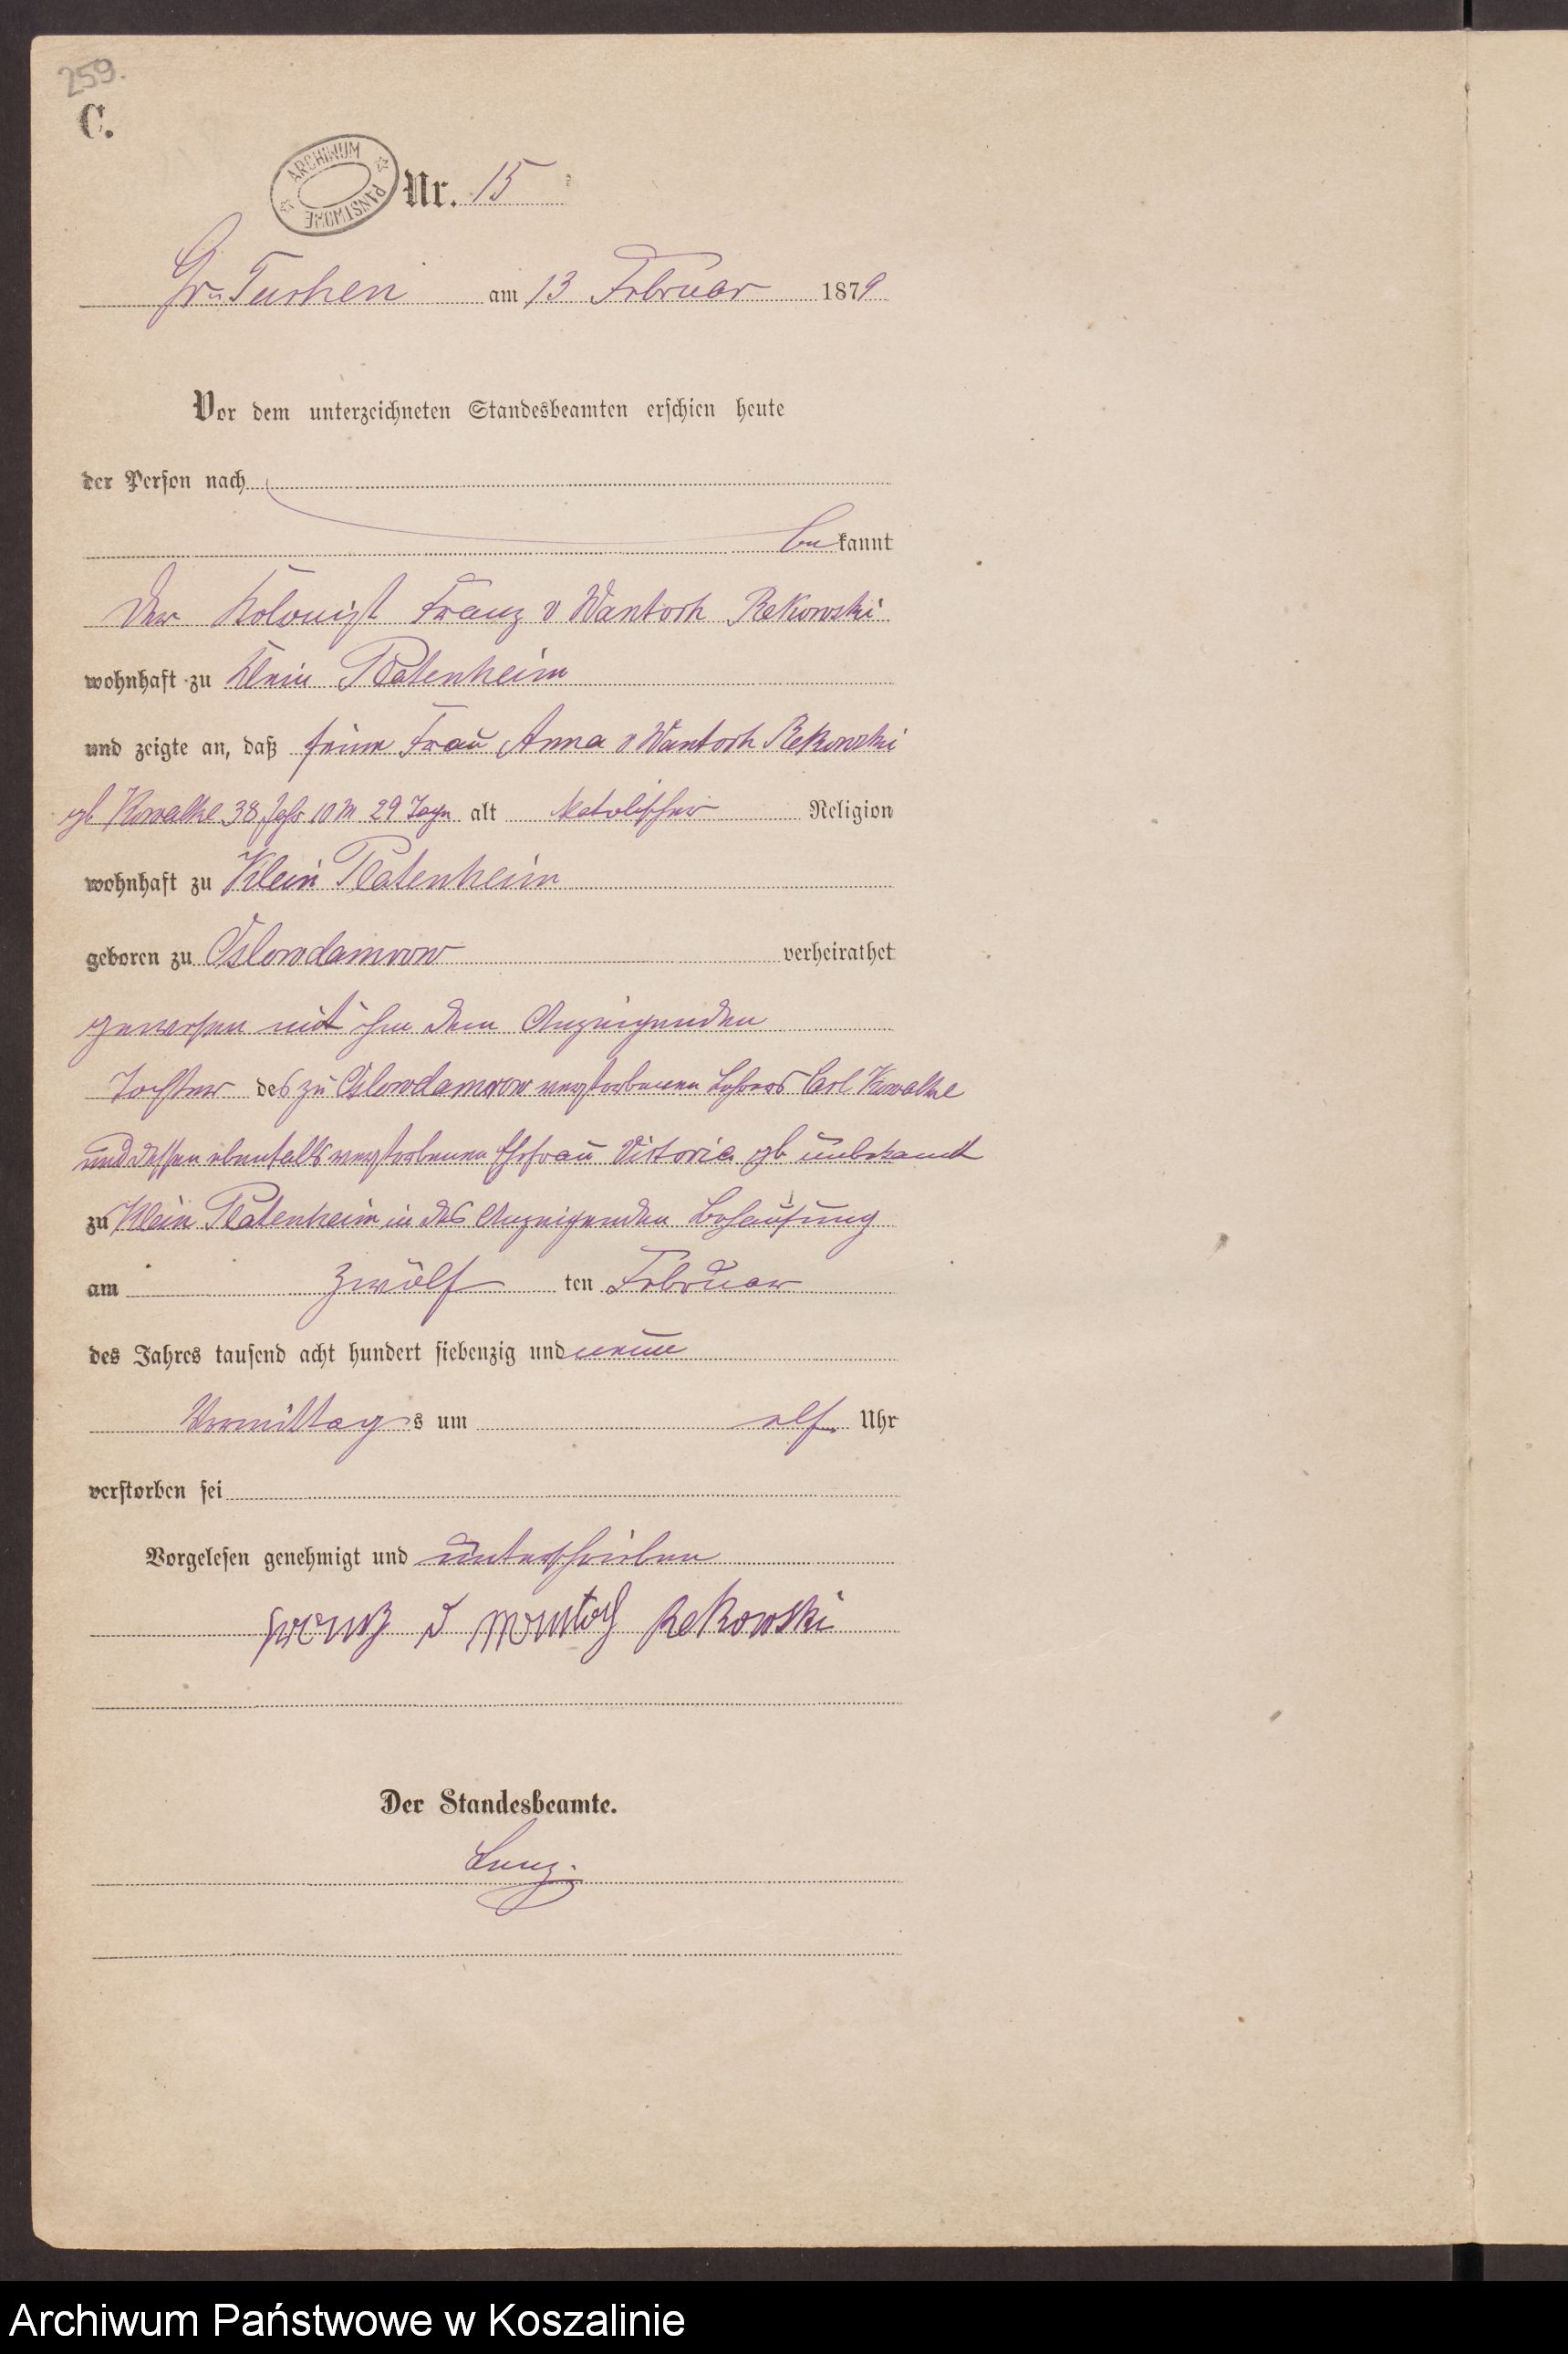 259.
C.
ARCHIWUM PAŃSTWOWE
Nr. 15
Gr. Tuchen am 13 Februar 1879
Vor dem unterzeichneten Standesbeamten erschien heute
der Person nach
be kannt
der Kolonist Franz v Wantoch Rekowski
wohnhaft zu Klein Platenheim
und zeigte an, daß seine Frau Anna v Wantoch Rekowski
gb Kowalke 38 Jahr 10 M 29 Tage alt katolischer Religion
wohnhaft zu Klein Platenheim
geboren zu Oslowdamrow verheirathet
gewesen mit ihm dem Anzeigenden
Tochter des zu Oslowdamrow verstorbenen Lehrers Carl Kowalke
und dessen ebenfalls verstorbenen Ehefrau Victoria gb unbekannt
zu Klein Platenheim in des Anzeigenden Behausung
am zwölf ten Februar
des Jahres tausend acht hundert siebenzig und neun
Vormittag s um elf Uhr
verstorben sei
Vorgelesen genehmigt und unterschrieben
Franz v Wantoch Rekowski
Der Standesbeamte.
Archiwum Państwowe w Koszalinie